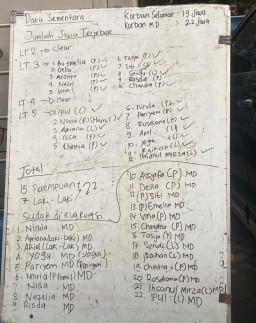 Data Sementara
Korban Selamat : 19 Jiwa
Korban MD : 22 Jiwa
Jumlah Jiwa Terjebak
LT 2 → clear
LT 3 → 1. Bu emelia (P)
2. Della (P)
3. Assyifa (P)
4. Nazel (P)
5. Vina (P)
6. Tasya (P)
7. Siti (P)
8. Sendy (L)
9. Risda (P)
10. Chandra (P)
LT 4 → clear
LT 5 → 1. Ipul (L)
2. Novia (P) (Hamil)
3. Apriana (L)
4. (P)
5. Chintia (P)
6. Ninda (P)
7. Pariyem (P)
8. Rosdiana (P)
9. Ariel (L)
10. Yoga (L)
11. Raihan (L)
12. Ihsanul Mirza (L)
Total
15 Perempuan
7 Laki-Laki
22
Sudah di evakuasi
1. Ninda MD
2. Apriana (Laki-Laki) MD
3. Ariel (Laki-Laki) MD
4. Yoga MD (Yoga)
5. Pariyem MD (Pariyem)
6. Novia (P Hamil) MD
7. Nisa MD
8. Nazelia MD
9. Risda MD
10. Assyifa (P) MD
11. Della (P) MD
12. (P) Siti MD
13. (P) Emelia MD
14. Vina (P) MD
15. Chandra (P) MD
16. Tasya (P) MD
17. Sendi (L) MD
18. Raihan (L) MD
19. Chintia (P) MD
20. Rosdiana (P) MD
21. Ihsanul Mirza (L) MD
22. IPUL (L) MD